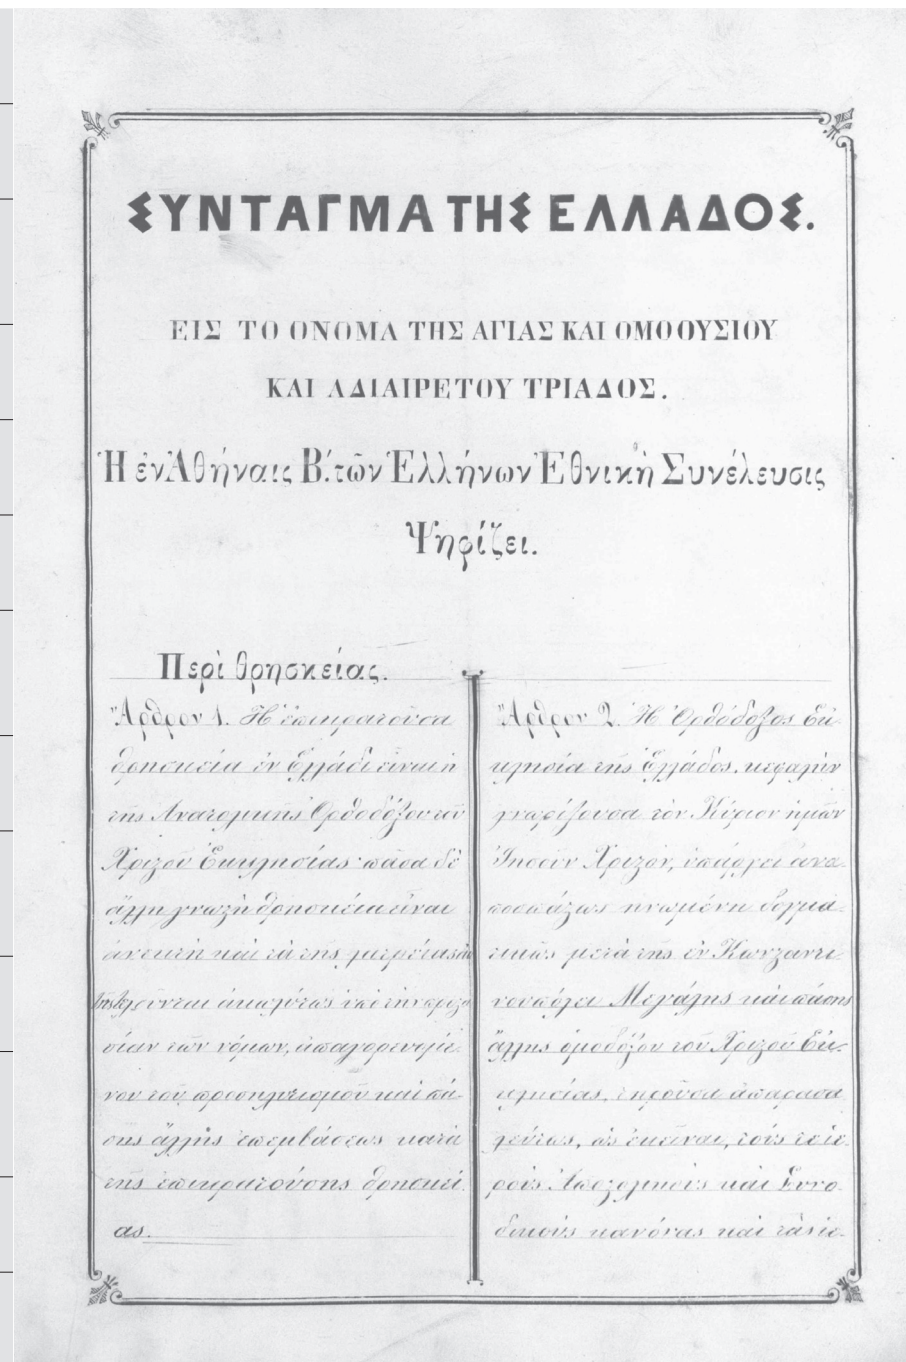 ΣΥΝΤΑΓΜΑ ΤΗΣ ΕΛΛΑΔΟΣ.
ΕΙΣ ΤΟ ΟΝΟΜΑ ΤΗΣ ΑΓΙΑΣ ΚΑΙ ΟΜΟΟΥΣΙΟΥ
ΚΑΙ ΑΔΙΑΙΡΕΤΟΥ ΤΡΙΑΔΟΣ.
Ἡ ἐν Ἀθήναις Β΄. τῶν Ἑλλήνων Ἐθνικὴ Συνέλευσις
Ψηφίζει.
Περὶ θρησκείας.
Ἄρθρον 1. Ἡ ἐπικρατοῦσα
θρησκεία ἐν Ἑλλάδι εἶναι ἡ
τῆς Ἀνατολικῆς Ὀρθοδόξου τοῦ
Χριστοῦ Ἐκκλησίας· πᾶσα δὲ
ἄλλη γνωστὴ θρησκεία εἶναι
ἀνεκτὴ καὶ τὰ τῆς λατρείας αὐ-
τῆς τελοῦνται ἀκωλύτως ὑπὸ τὴν προστα-
σίαν τῶν νόμων, ἀπαγορευομέ-
νου τοῦ προσηλυτισμοῦ καὶ πά-
σης ἄλλης ἐπεμβάσεως κατὰ
τῆς ἐπικρατούσης θρησκεί-
ας.
Ἄρθρον 2. Ἡ Ὀρθόδοξος Ἐκ-
κλησία τῆς Ἑλλάδος, κεφαλὴν
γνωρίζουσα τὸν Κύριον ἡμῶν
Ἰησοῦν Χριστόν, ὑπάρχει ἀνα-
ποσπάστως ἡνωμένη δογμα-
τικῶς μετὰ τῆς ἐν Κωνσταντι-
νουπόλει Μεγάλης καὶ πάσης
ἄλλης ὁμοδόξου τοῦ Χριστοῦ Ἐκ-
κλησίας, τηροῦσα ἀπαρασα-
λεύτως, ὡς ἐκεῖναι, τούς τε ἱε-
ροὺς Ἀποστολικοὺς καὶ Συνο-
δικοὺς κανόνας καὶ τὰς ἱε-